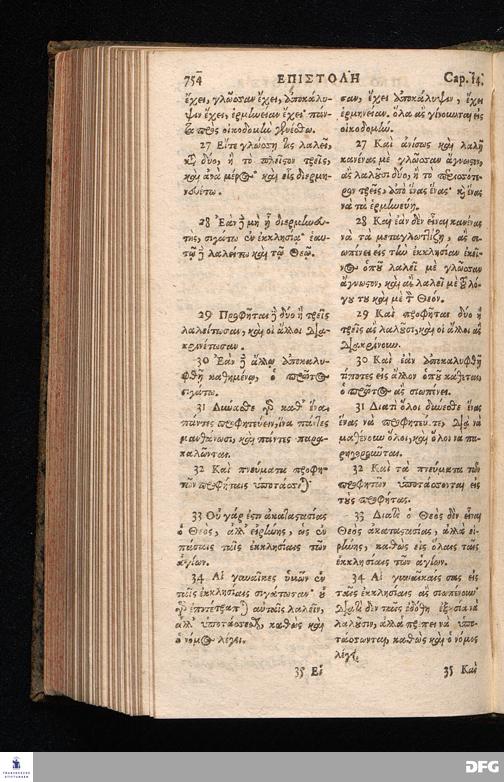 754
ΕΠΙΣΤΟΛΗ
Cap. 14.
ἔχει, γλῶσσαν ἔχει, ἀποκάλυ-
ψιν ἔχει, ἑρμηνείαν ἔχει· πάν-
τα πρὸς οἰκοδομὴν γενέσθω.
27 Εἴτε γλώσσῃ τὶς λαλεῖ,
κατὰ δύο, ἢ τὸ πλεῖστον τρεῖς,
καὶ ἀνὰ μέρος· καὶ εἷς διερμη-
νευέτω.
28 Ἐὰν δὲ μὴ ᾖ διερμηνευ-
τὴς, σιγάτω ἐν ἐκκλησίᾳ· ἑαυ-
τῷ δὲ λαλείτω καὶ τῷ Θεῷ.
29 Προφῆται δὲ δύο ἢ τρεῖς
λαλείτωσαν, καὶ οἱ ἄλλοι δια-
κρινέτωσαν.
30 Ἐὰν δὲ ἄλλῳ ἀποκαλυ-
φθῇ καθημένῳ, ὁ πρῶτος
σιγάτω.
31 Δύνασθε γὰρ καθ' ἕνα
πάντες προφητεύειν, ἵνα πάντες
μανθάνωσι, καὶ πάντες παρα-
καλῶνται.
32 Καὶ πνεύματα προφη-
τῶν προφήταις ὑποτάσσεται·
33 Οὐ γάρ ἐστιν ἀκαταστασίας
ὁ Θεὸς, ἀλλ' εἰρήνης, ὡς ἐν
πάσαις ταῖς ἐκκλησίαις τῶν
ἁγίων.
34 Αἱ γυναῖκες ὑμῶν ἐν
ταῖς ἐκκλησίαις σιγάτωσαν· οὐ
γὰρ ἐπιτέτραπται αὐταῖς λαλεῖν,
ἀλλ' ὑποτάσσεσθαι, καθὼς καὶ
ὁ νόμος λέγει.
35 Εἰ
σαν, ἔχει ἀποκάλυψιν, ἔχει
ἑρμηνείαν. ὅλα ἂς γίνουνται εἰς
οἰκοδομήν.
27 Καὶ ἀνίσως καὶ λαλῇ
κανένας μὲ γλῶσσαν ἄγνωστον,
ἂς λαλοῦσι δύο, ἢ τὸ περισσότε-
ρον τρεῖς, ἀπὸ ἕνας ἕνας· καὶ ἕνας
νὰ τὰ ἑρμηνεύῃ.
28 Καὶ ἐὰν δὲν εἶναι κανένας
νὰ τὰ μεταγλωττίζῃ, ἂς σι-
ωπαίνει εἰς τὴν ἐκκλησίαν ἐκεῖ-
νος ὁποῦ λαλεῖ μὲ γλῶσσαν
ἄγνωστον, καὶ ἂς λαλεῖ μὲ τοῦ λό-
γου του καὶ μὲ τὸν Θεόν.
29 Καὶ προφῆται δύο ἢ
τρεῖς ἂς λαλοῦσι, καὶ οἱ ἄλλοι ἂς
διακρίνουν.
30 Καὶ ἐὰν ἀποκαλυφθῇ
τίποτες εἰς ἄλλον ὁποῦ κάθεται,
ὁ πρῶτος ἂς σιωπαίνει.
31 Διατὶ ὅλοι δύνεσθε ἕνας
ἕνας νὰ προφητεύετε, διὰ νὰ
μαθαίνουν ὅλοι, καὶ ὅλοι νὰ πα-
ρηγοροῦνται.
32 Καὶ τὰ πνεύματα τῶν
προφητῶν ὑποτάσσονται εἰς
τοὺς προφήτας.
33 Διατὶ ὁ Θεὸς δὲν εἶναι
Θεὸς ἀκαταστασίας, ἀλλὰ εἰ-
ρήνης, καθὼς εἰς ὅλαις ταῖς
ἐκκλησίαις τῶν ἁγίων.
34 Αἱ γυναῖκαις σας εἰς
ταῖς ἐκκλησίαις ἂς σιωπαίνουν·
διατὶ δὲν ταῖς ἐδόθη ἐξουσία νὰ
λαλοῦσιν, ἀλλὰ πρέπει νὰ ὑπο-
τάσσωνται, καθὼς καὶ ὁ νόμος
λέγει.
35 Καὶ
FRANCKESCHE
STIFTUNGEN
DFG